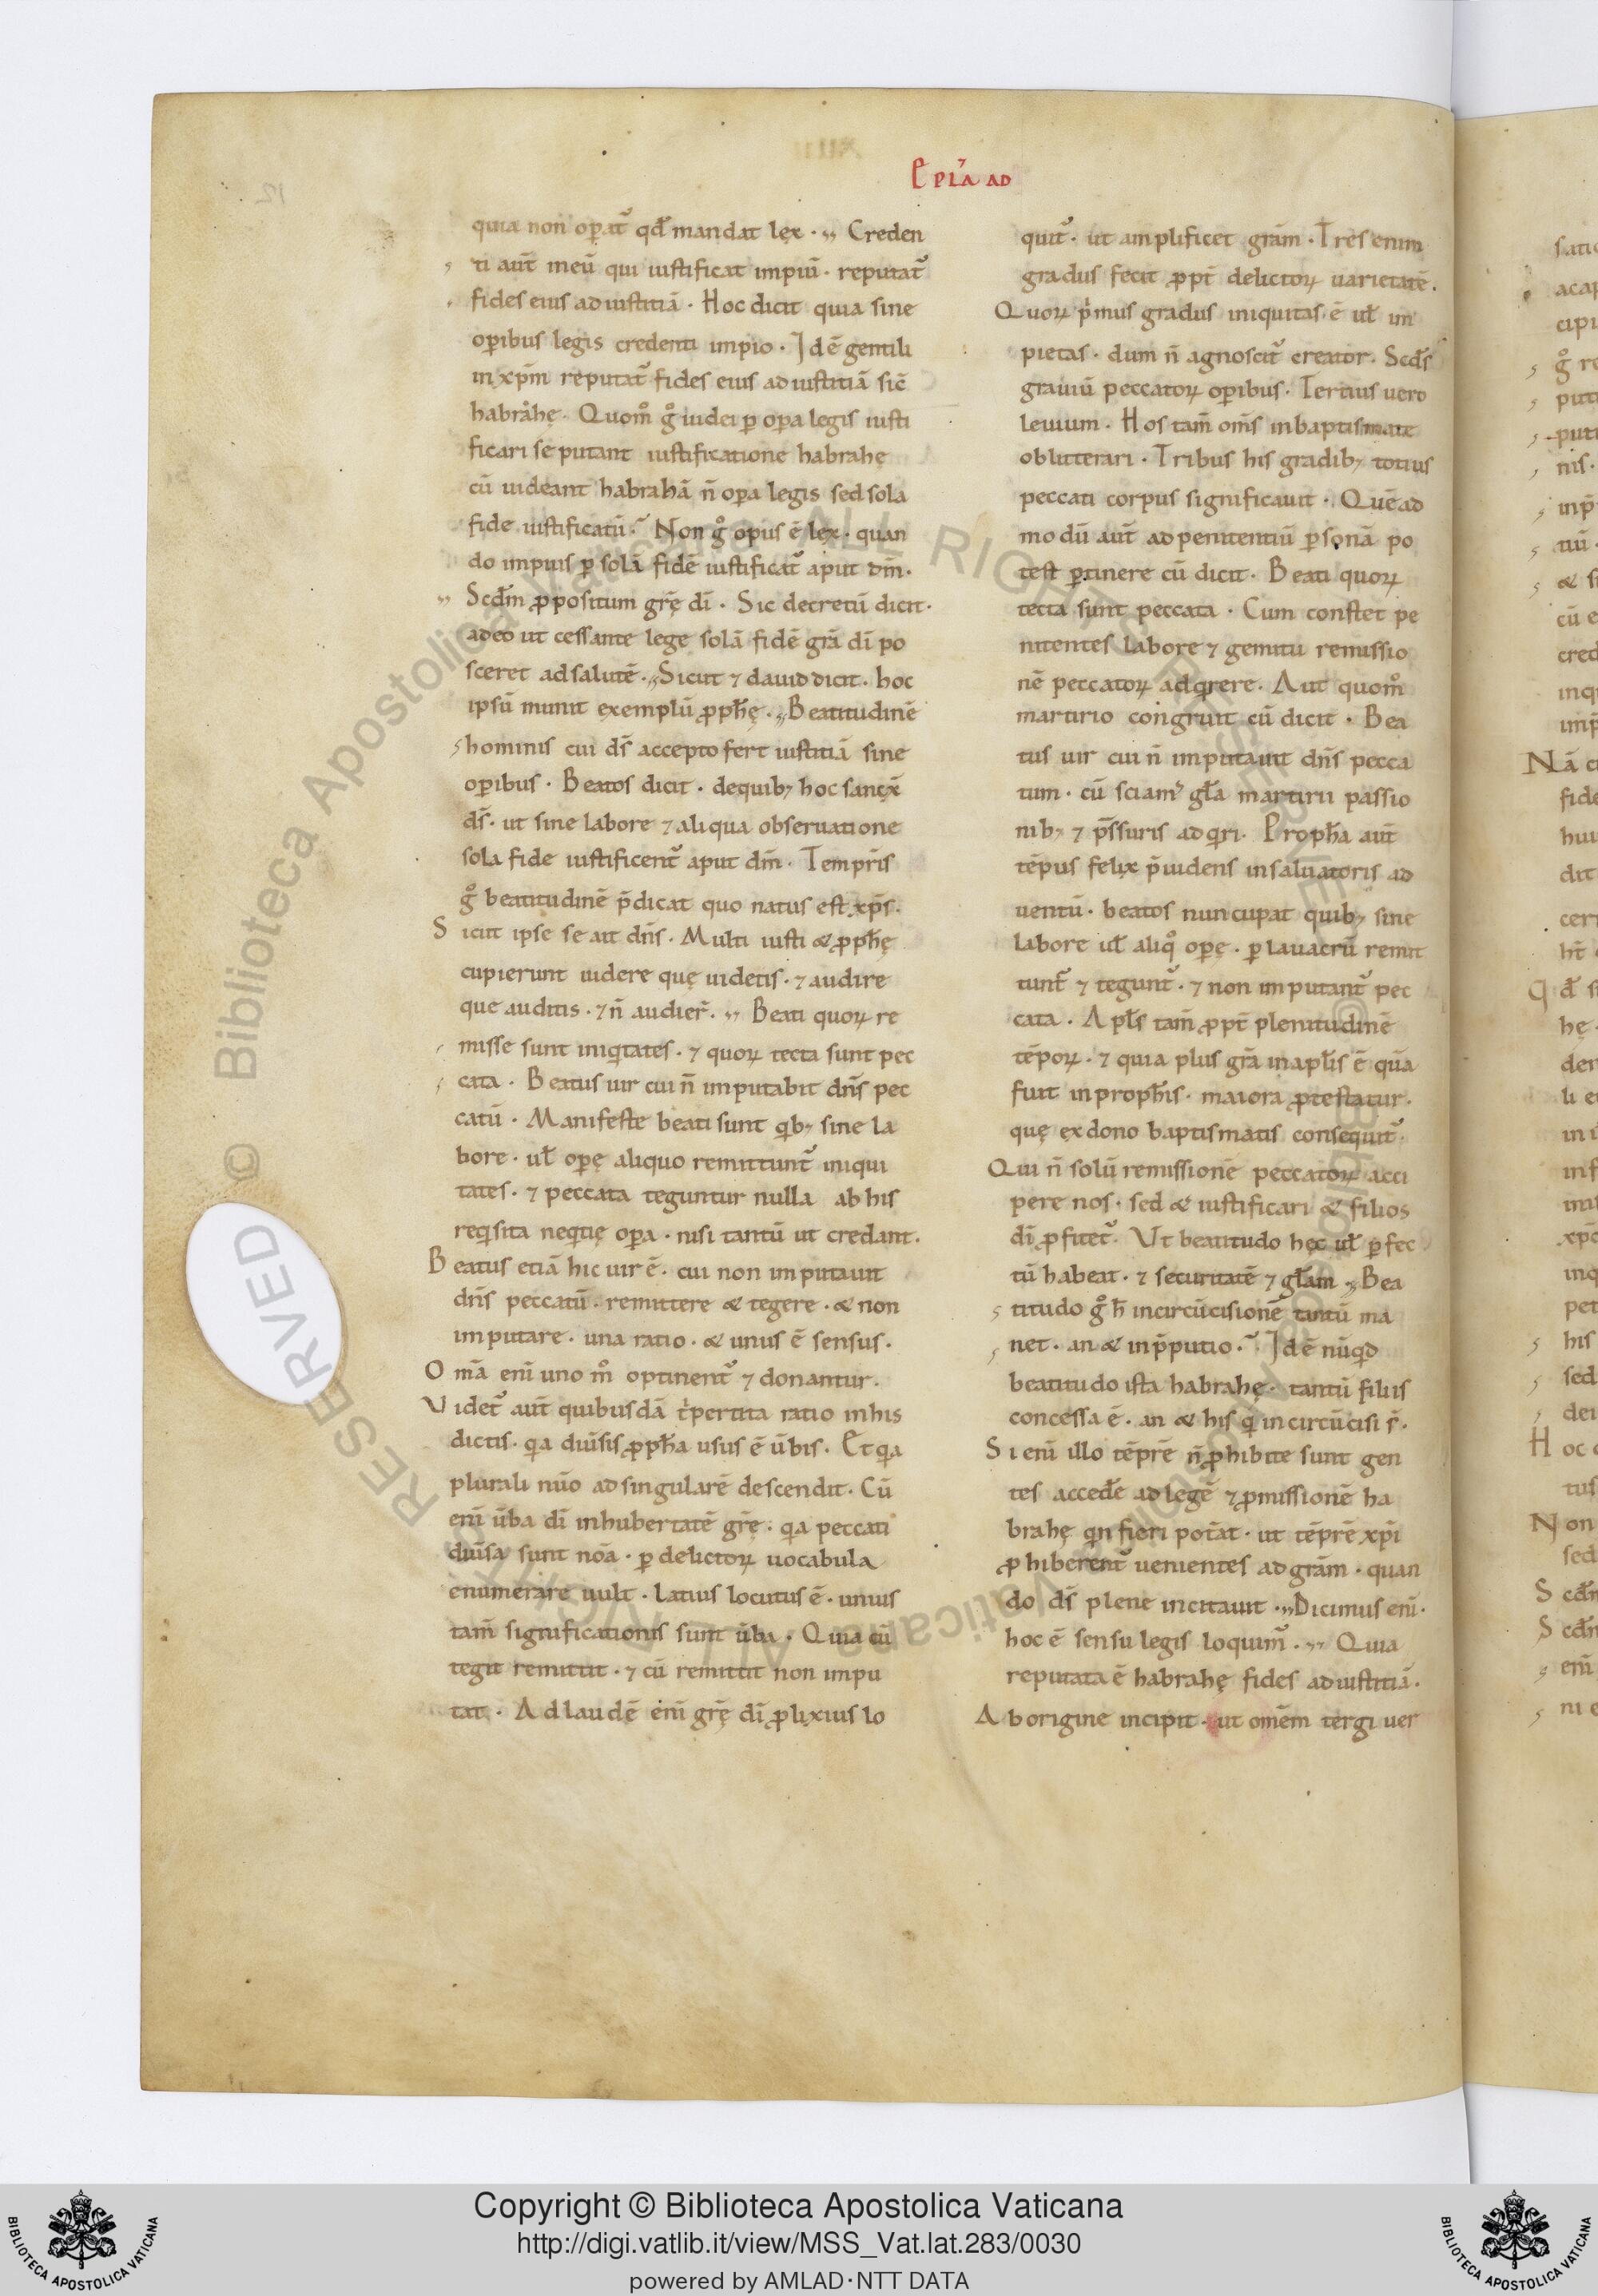 Epl'a ad
quia non opat̃ qđ mandat lęx · ,, Creden
ti aut̃ ineū qui iustificat impiū · reputat̃
fides eius ad iustitiā · Hoc dicit quia sine
opibus legis credenti impio · Idē gentili
in xp̄m reputat̃ fides eius ad iustitiā sic̄
habrahę · Quom̊ g̊ iudei p opa legis iusti
ficari se putant iustificatione habrahę
cū uideant habrahā n̄ opa legis sed sola
fide iustificatū · Non g̊ opus ē lęx · quan
do impius p solā fidē iustificat̃ aput dm̄ ·
Scđm ppositum grę̄ dī · Sic decretū dicit ·
adeo ut cessante lege solā fidē grā dī po
sceret ad salutē · ,, Sicut ⁊ dauid dicit · hoc
ipsū munit exemplū pphę̄ · ,, Beatitudinē
hominis cui ds̄ accepto fert iustitiā sine
opibus · Beatos dicit · de quib; hoc sancx̄
ds̄ · ut sine labore ⁊ aliqua obseruatione
sola fide iustificent̃ aput dm̄ · Tempris
g̊ beatitudinē p̄dicat quo natus est xp̄s ·
Sicut ipse se ait dn̄s · Multi iusti & pphę̄
cupierunt uidere quę uidetis · ⁊ audire
que auditis · ⁊ n̄ audier̄ · ,, Beati quoꝝ re
misse sunt iniqtates · ⁊ quoꝝ tecta sunt pec
cata · Beatus uir cui n̄ imputabit dn̄s pec
catū · Manifeste beati sunt qb; sine la
bore · ul̄ opę aliquo remittunt̃ iniqui
tates · ⁊ peccata teguntur nulla ab his
reqsita neqtię opa · nisi tantū ut credant ·
Beatus etiā hic uir ē · cui non imputauit
dn̄s peccatū · remittere & tegere · & non
imputare · una ratio · & unus ē sensus ·
Om̄a enī uno m̊ optinent̃ ⁊ donantur ·
Videt̃ aut̃ quibusdā tpertita ratio in his
dictis · qa diūsis pph̄a usus ē ūbis · Et qa
plurali nūo ad singularē descendit · Cū
enī ūba dī in hubertatē grę̄ · qa peccati
diūsa sunt noā · p delictoꝝ uocabula
enumerare uult · Latius locutus ē · unius
tam̄ significationis sunt ūba · Quia cū
tegit remittit · ⁊ cū remittit non impu
tat · Ad laudē enī grę̄ dī plixius lo
quit̃ · ut amplificet grām · Tres enim
gradus fecit ppt̄ delictoꝝ uarietatē ·
Quoꝝ pmus gradus iniquitas ē ul̄ im
pietas · dum n̄ agnoscit̃ creator · Scđs
grauiū peccatoꝝ opibus · Tertius uero
leuium · Hos tam̄ om̄s in baptismate
oblitterari · Tribus his gradib; totius
peccati corpus significauit · Quēad
modū aut̃ ad penitentiū psonā po
test ptinere cū dicit · Beati quoꝝ
tecta sunt peccata · Cum constet pe
nitentes labore ⁊ gemitu remissio
nē peccatoꝝ adqrere · Aut quom̊
martirio congruit cū dicit · Bea
tus uir cui n̄ imputauit dn̄s pecca
tum · cū sciam' gl̄a martirii passio
nib; ⁊ p̄ssuris adqri · Proph̄a aut̃
tēpus felix p̄uidens in saluatoris ad
uentū · beatos nuncupat quib; sine
labore ul̄ aliq̊ opę · p lauacrū remit
tunt̃ ⁊ tegunt̃ · ⁊ non imputant̃ pec
cata · Apl̄s tam̄ ppt̄ plenitudinē
tēpoꝝ · ⁊ quia plus grā in apl̄is ē quā
fuit in proph̄is · maiora ptestatur ·
quę ex dono baptismatis consequit̃ ·
Qui n̄ solū remissionē peccatoꝝ acci
pere nos · sed & iustificari & filios
dī pfitet̃ · Vt beatitudo hęc ul̄ pfec
tū habeat · ⁊ securitatē ⁊ gl̄am ,, Bea
titudo g̊ h̄ in circūcisionē tantū ma
net · an & in p̄putio · Idē nūqd
beatitudo ista habrahę · tantū filiis
concessa ē · an & his q incircūcisi s̄ ·
Si enī illo tēprē n̄ phibite sunt gen
tes accedē ad legē ⁊ pmissionē ha
brahę qn fieri potāt · ut tēprē xp̄i
phiberent̃ uenientes ad grām · quan
do ds̄ plene incitauit · ,, Dicimus enī ·
hoc ē sensu legis loquim̃ · ,, Quia
reputata ē habrahę fides ad iustitiā ·
Ab origine incipit · ut om̄em tergiuer
Copyright © Biblioteca Apostolica Vaticana
http://digi.vatlib.it/view/MSS_Vat.lat.283/0030
powered by AMLAD·NTT DATA